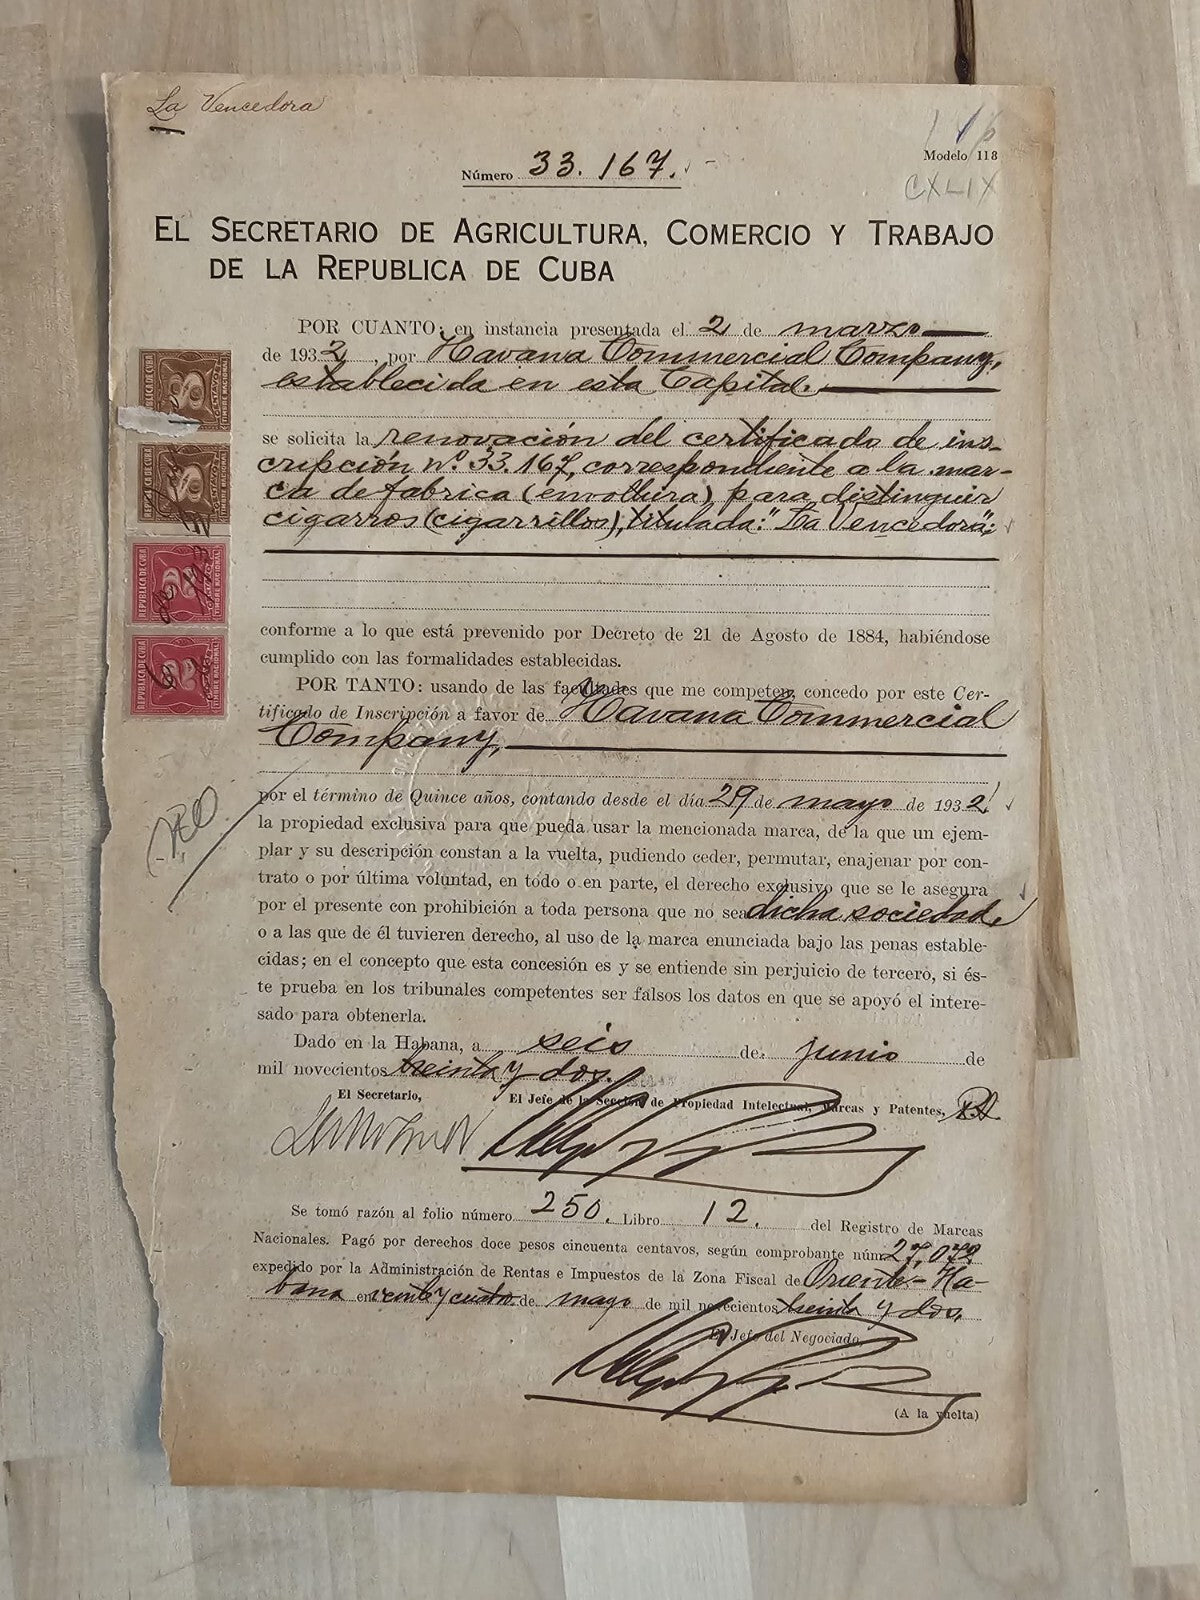 La Vencedora
Modelo 118
CXLIX
Número 33.167.
EL SECRETARIO DE AGRICULTURA, COMERCIO Y TRABAJO
DE LA REPUBLICA DE CUBA
POR CUANTO: en instancia presentada el 2 de marzo
de 1932, por Havana Commercial Company,
establecida en esta Capital.
se solicita la renovación del certificado de ins-
cripción nº 33.167, correspondiente a la mar-
ca de fabrica (envoltura) para distinguir
cigarros (cigarrillos), titulada: "La Vencedora";
REPUBLICA DE CUBA
TIMBRE NACIONAL
REPUBLICA DE CUBA
TIMBRE NACIONAL
REPUBLICA DE CUBA
TIMBRE NACIONAL
REPUBLICA DE CUBA
TIMBRE NACIONAL
conforme a lo que está prevenido por Decreto de 21 de Agosto de 1884, habiéndose
cumplido con las formalidades establecidas.
POR TANTO: usando de las facultades que me competen, concedo por este Cer-
tificado de Inscripción a favor de Havana Commercial
Company,
por el término de Quince años, contando desde el día 29 de mayo de 1932,
la propiedad exclusiva para que pueda usar la mencionada marca, de la que un ejem-
plar y su descripción constan a la vuelta, pudiendo ceder, permutar, enajenar por con-
trato o por última voluntad, en todo o en parte, el derecho exclusivo que se le asegura
por el presente con prohibición a toda persona que no sea dicha sociedad,
o a las que de él tuvieren derecho, al uso de la marca enunciada bajo las penas estable-
cidas; en el concepto que esta concesión es y se entiende sin perjuicio de tercero, si és-
te prueba en los tribunales competentes ser falsos los datos en que se apoyó el intere-
sado para obtenerla.
Dado en la Habana, a seis de junio de
mil novecientos treinta y dos.
El Secretario, El Jefe de la Sección de Propiedad Intelectual, Marcas y Patentes,
Se tomó razón al folio número 250. Libro 12. del Registro de Marcas
Nacionales. Pagó por derechos doce pesos cincuenta centavos, según comprobante núm. 27,072
expedido por la Administración de Rentas e Impuestos de la Zona Fiscal de Oriente-Ha-
bana en veinte y cuatro de mayo de mil novecientos treinta y dos.
El Jefe del Negociado,
(A la vuelta)